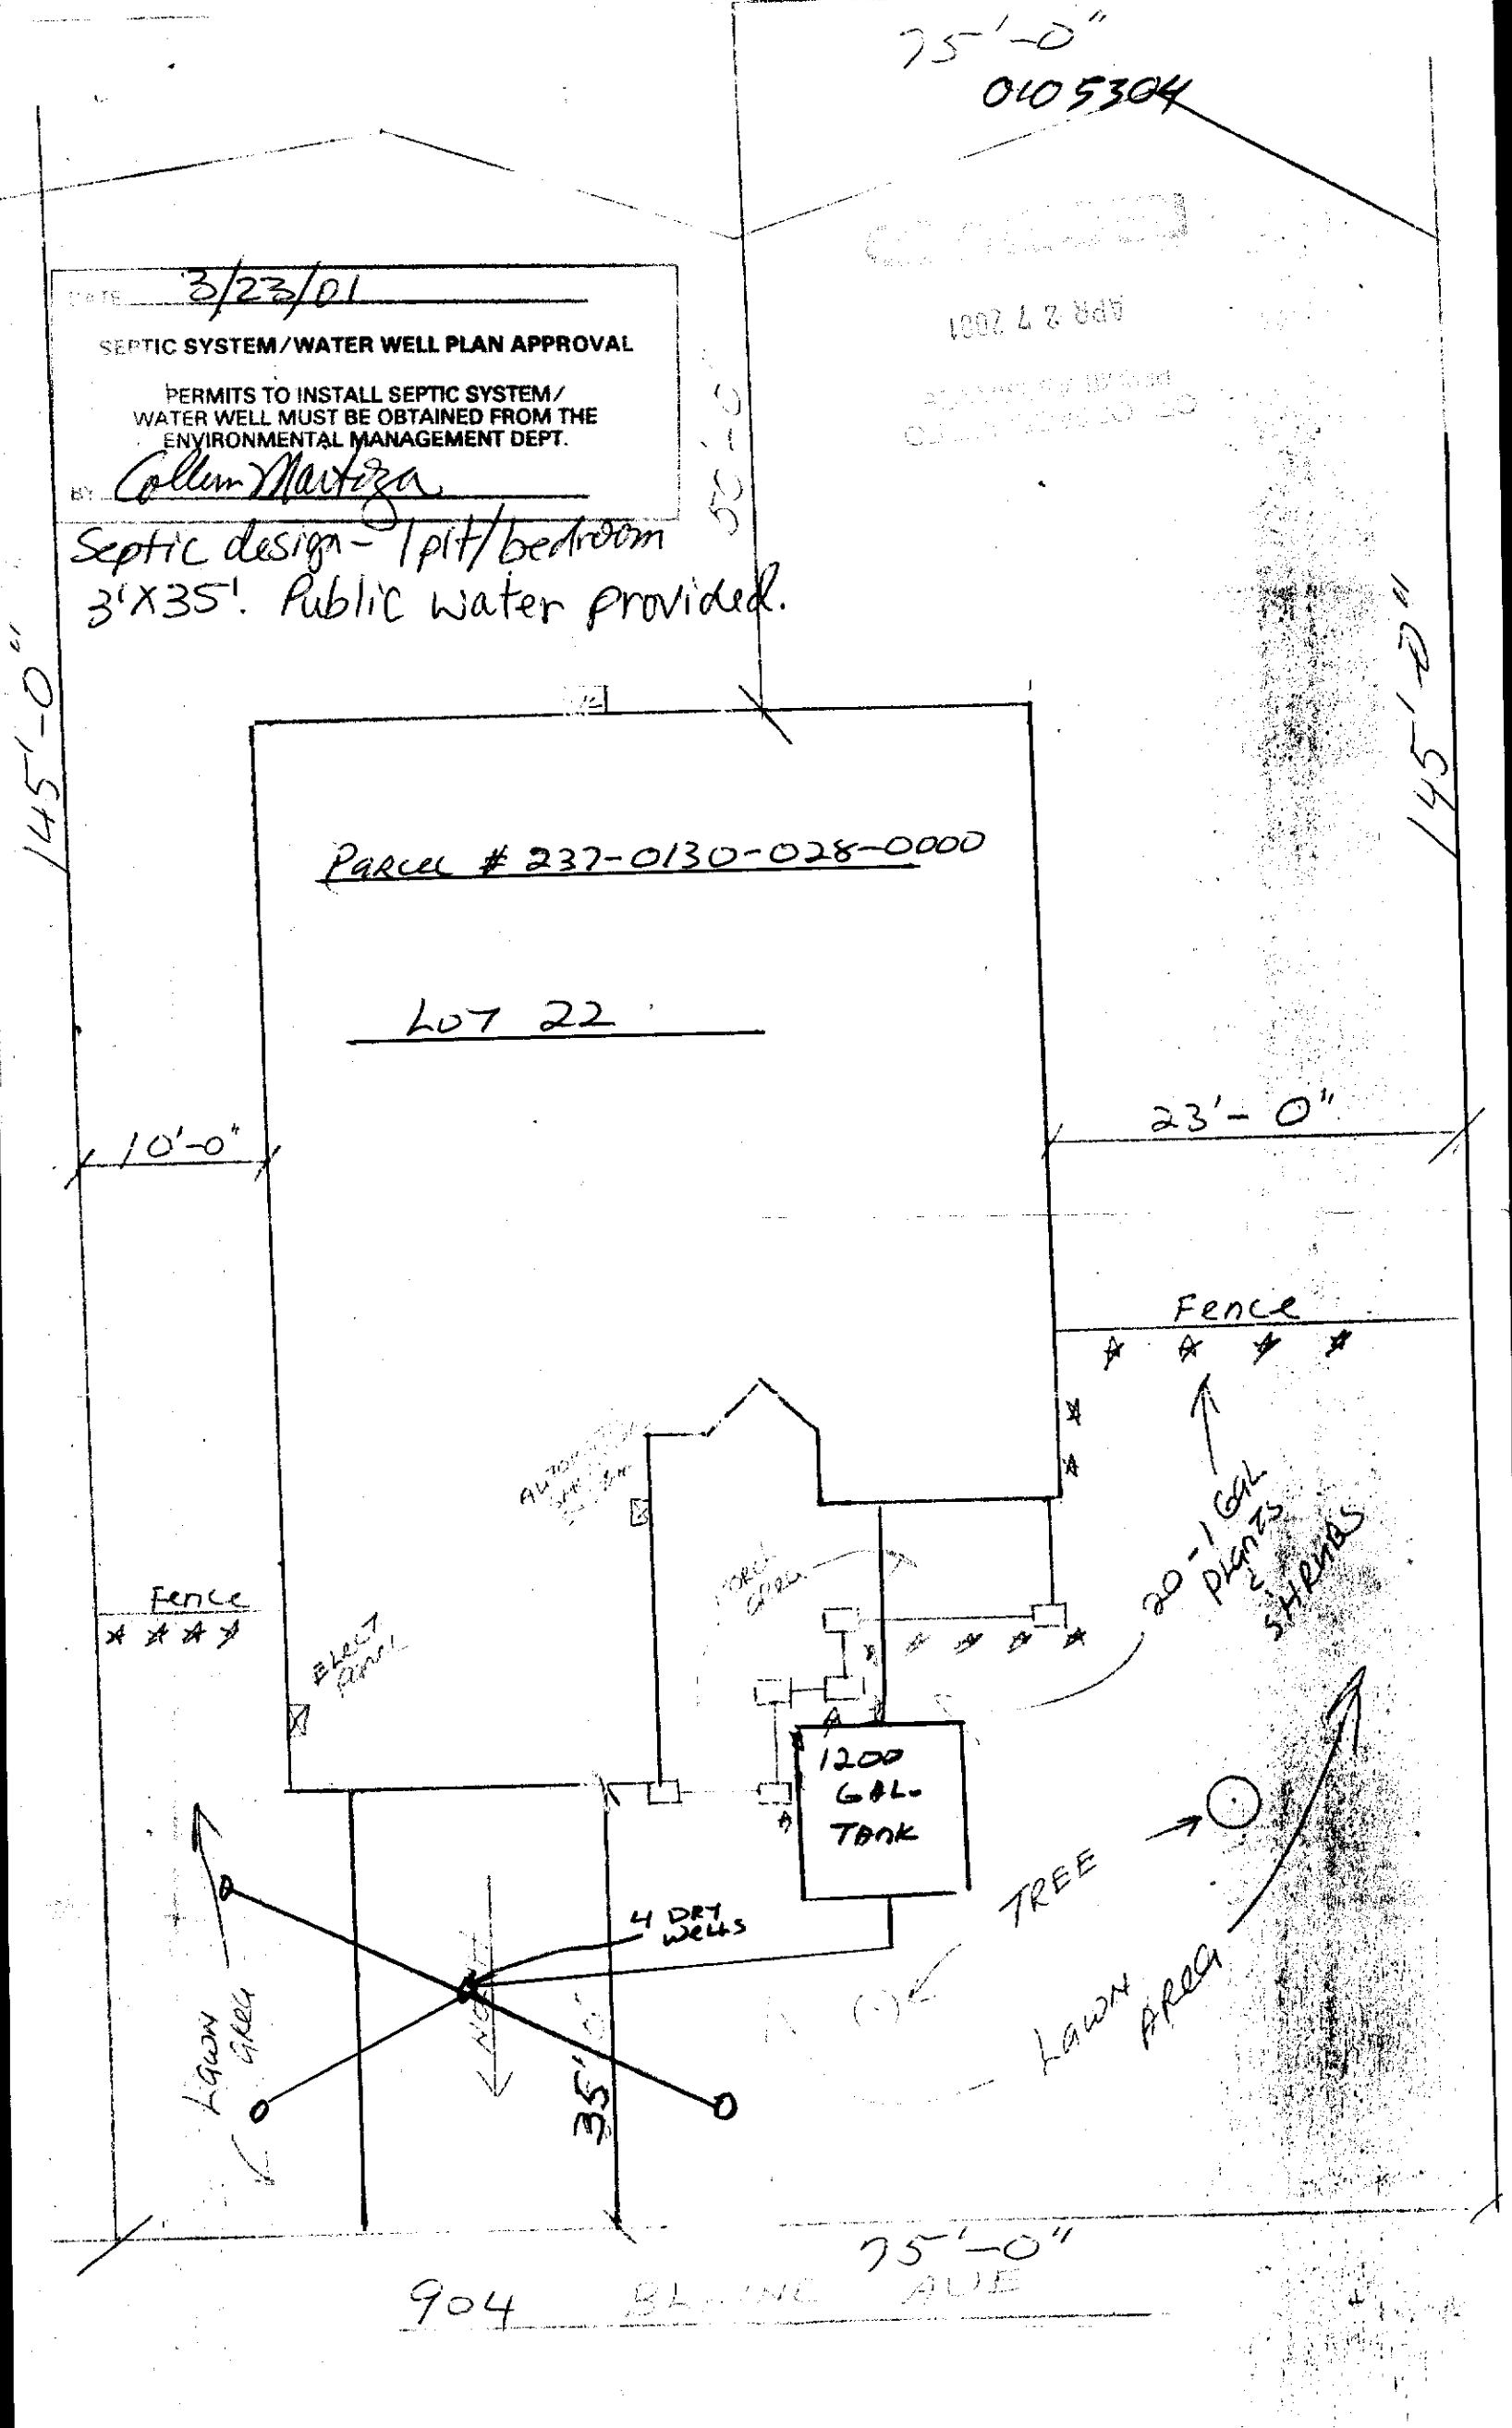 75'-0"
0105304
DATE 3/23/01
SEPTIC SYSTEM/WATER WELL PLAN APPROVAL
PERMITS TO INSTALL SEPTIC SYSTEM/
WATER WELL MUST BE OBTAINED FROM THE
ENVIRONMENTAL MANAGEMENT DEPT.
BY
Septic design - 1 pit/bedroom
3'X35'. Public water provided.
APR 27 2001
50'-0
145'-0"
145'-0"
Parcel # 237-0130-028-0000
LOT 22
10'-0"
23'-0"
Fence
20-1 GAL
PLANTS
&
SHRUBS
Fence
ELECT
PANEL
1200
GAL.
TANK
4 DRY
WELLS
TREE
LAWN
AREA
LAWN
AREA
35'
75'-0"
904 AVE